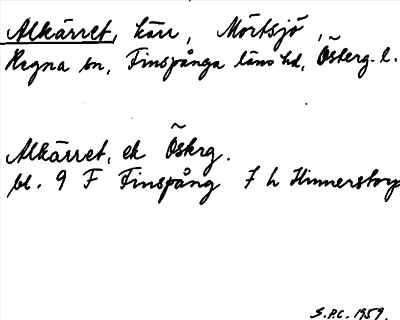 Alkärret, kärr, Mörtsjö,
Regna sn, Finspånga läns hd, Österg. l.
Alkärret, ek Österg.
bl. 9 F Finspång 7 h Hinnerstorp
S.P.C. 1959.